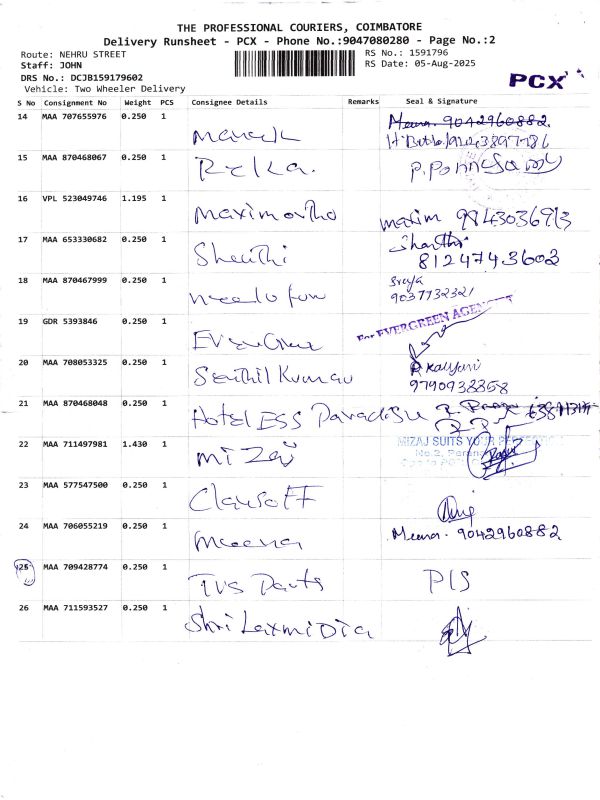 THE PROFESSIONAL COURIERS, COIMBATORE
Delivery Runsheet - PCX - Phone No.:9047080280 - Page No.:2
Route: NEHRU STREET
RS No.: 1591796
Staff: JOHN
RS Date: 05-Aug-2025
DRS No.: DCJB159179602
Vehicle: Two Wheeler Delivery
PCX
S No Consignment No Weight PCS Consignee Details Remarks Seal & Signature
14 MAA 707655976 0.250 1 Meena. 9042960882.
15 MAA 870468067 0.250 1 Rekha. P. Ponnusamy
16 VPL 523049746 1.195 1 Maximortho maxim 9843036913
17 MAA 653330682 0.250 1 Shanthi Shanthi
8124743602
18 MAA 870467999 0.250 1 Sreya
9037732321
19 GDR 5393846 0.250 1 Evergreen For EVERGREEN AGENCIES
20 MAA 708053325 0.250 1 Senthil Kumar Kalyani
9790938358
21 MAA 870468048 0.250 1 Hotel ESS Paradise
22 MAA 711497981 1.430 1 Mizaj MIZAJ SUITS YOUR
No.2,
23 MAA 577547500 0.250 1
24 MAA 706055219 0.250 1 Meena Meena. 9042960882
25 MAA 709428774 0.250 1 TVS Parts PIS
26 MAA 711593527 0.250 1 Shri Laxmi Dia